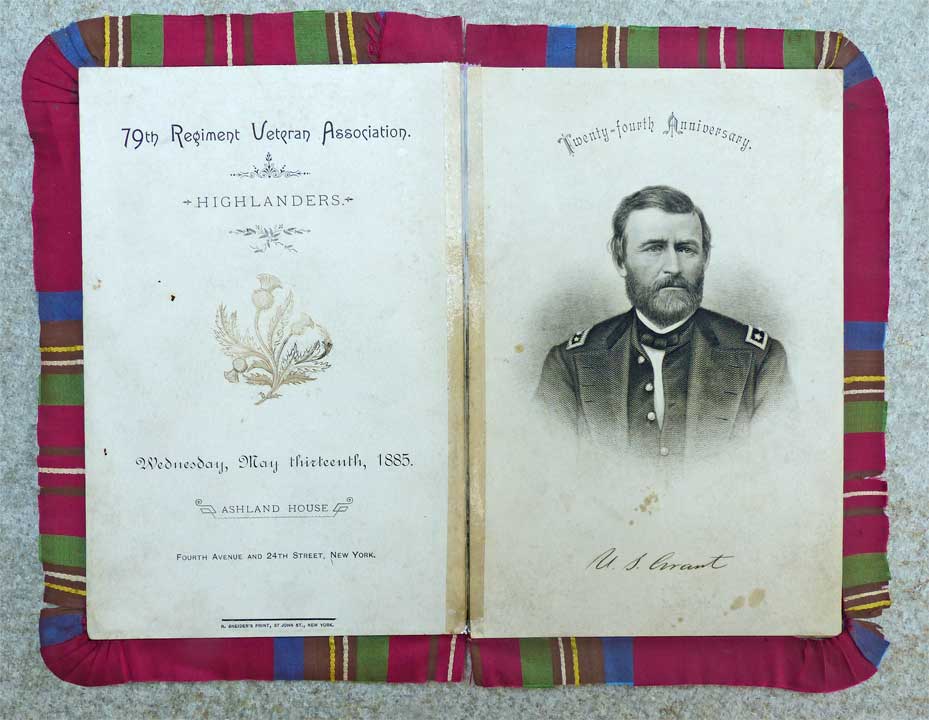 79th Regiment Veteran Association.
HIGHLANDERS.
Wednesday, May thirteenth, 1885.
ASHLAND HOUSE
FOURTH AVENUE AND 24TH STREET, NEW YORK.
R. SNEIDER'S PRINT, 37 JOHN ST., NEW YORK.
Twenty-fourth Anniversary.
U. S. Grant